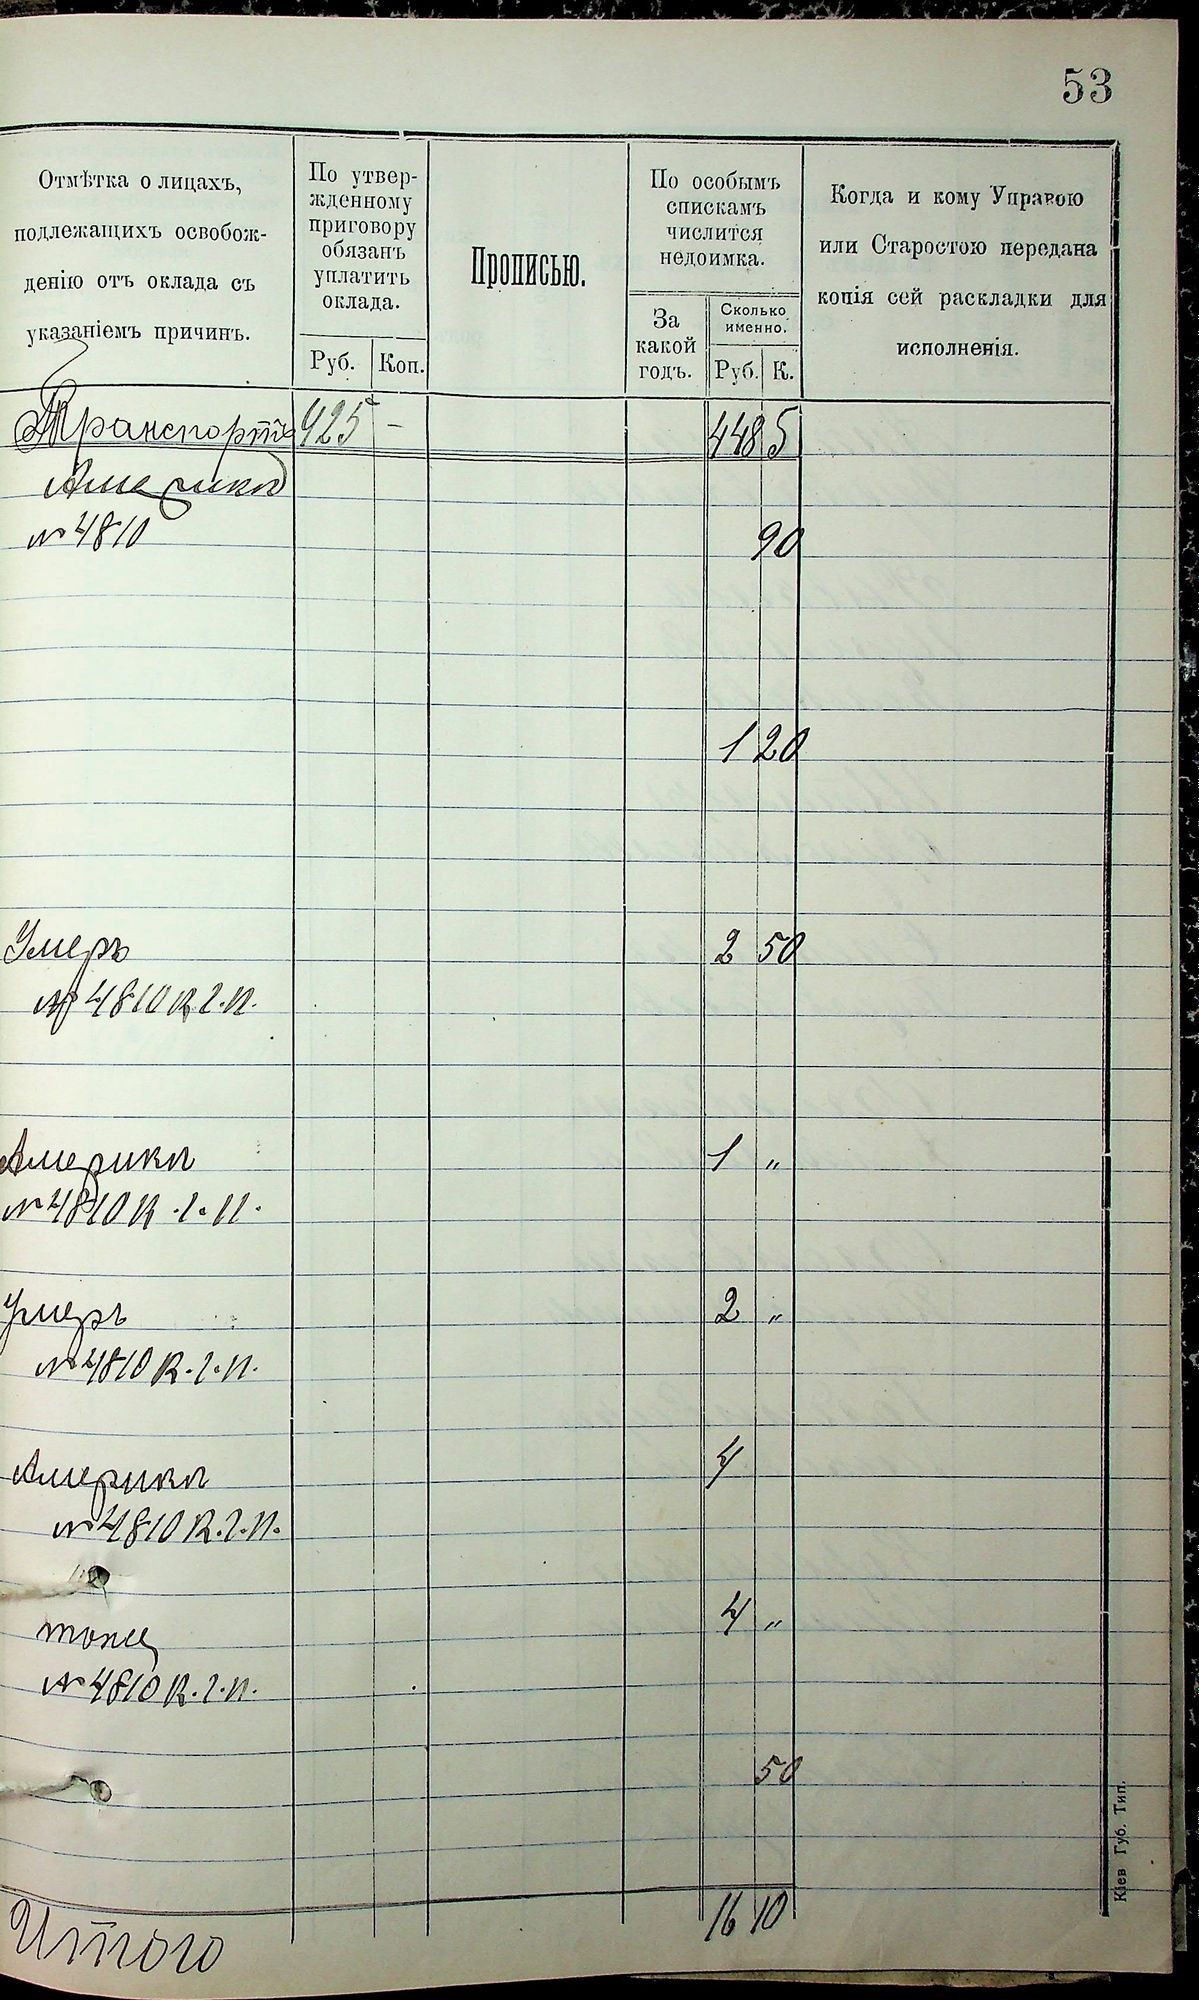 53
Отмѣтка о лицахъ,
подлежащихъ освобож-
денію отъ оклада съ
указаніемъ причинъ.
По утвер-
жденному
приговору
обязанъ
уплатить
оклада.
Руб. Коп.
Прописью.
По особымъ
спискамъ
числится
недоимка.
За
какой
годъ.
Сколько
именно.
Руб. К.
Когда и кому Управою
или Старостою передана
копія сей раскладки для
исполненія.
Транспортъ 425 - 448 5
Америка
№ 4810 90
1 20
Умеръ 2 50
№ 4810 К.г.п.
Америка 1 "
№ 4810 К.г.п.
Умеръ 2 "
№ 4810 К.г.п.
Америка 4
№ 4810 К.г.п.
тоже 4 "
№ 4810 К.г.п.
50
Итого 16 10
Кіев Губ. Тип.